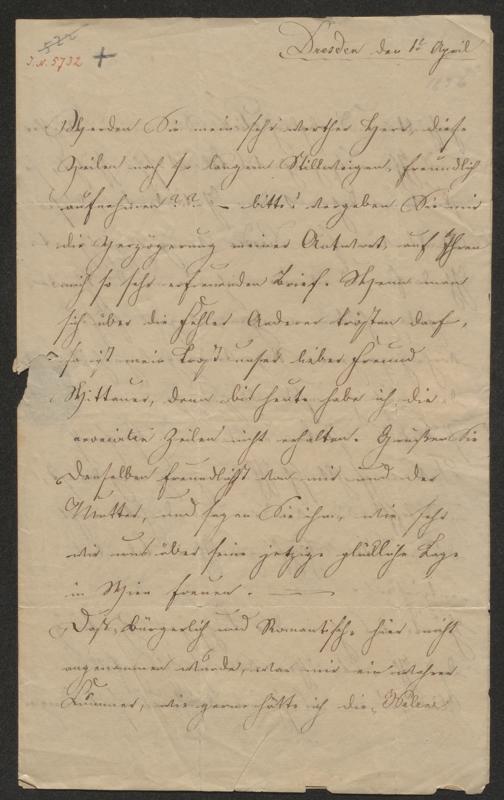 522
I.N. 5732 +
Dresden den 1t April
Werden Sie mein sehr werther Herr, diese
Zeilen nach so langem Stillschweigen, freundlich
aufnehmen?? – bitte! vergeben Sie mir
die Verzögerung meiner Antwort, auf Ihren
mich so sehr erfreuenden Brief. Wenn man
sich über die Fehler Anderer trösten darf,
so ist mein Trost unser lieber Freund
Wittauer, denn bis heute habe ich die
Zeilen nicht erhalten. Grüßen Sie
Denselben freundlichst von mir und der
Mutter, und sagen Sie ihm, wie sehr
wir uns über seine jetzige glückliche Lage
in Wien freuen. —
Daß, Bürgerlich und Romantisch, hier nicht
angenommen wurde, war mir ein wahrer
Kummer, wie gerne hätte ich die